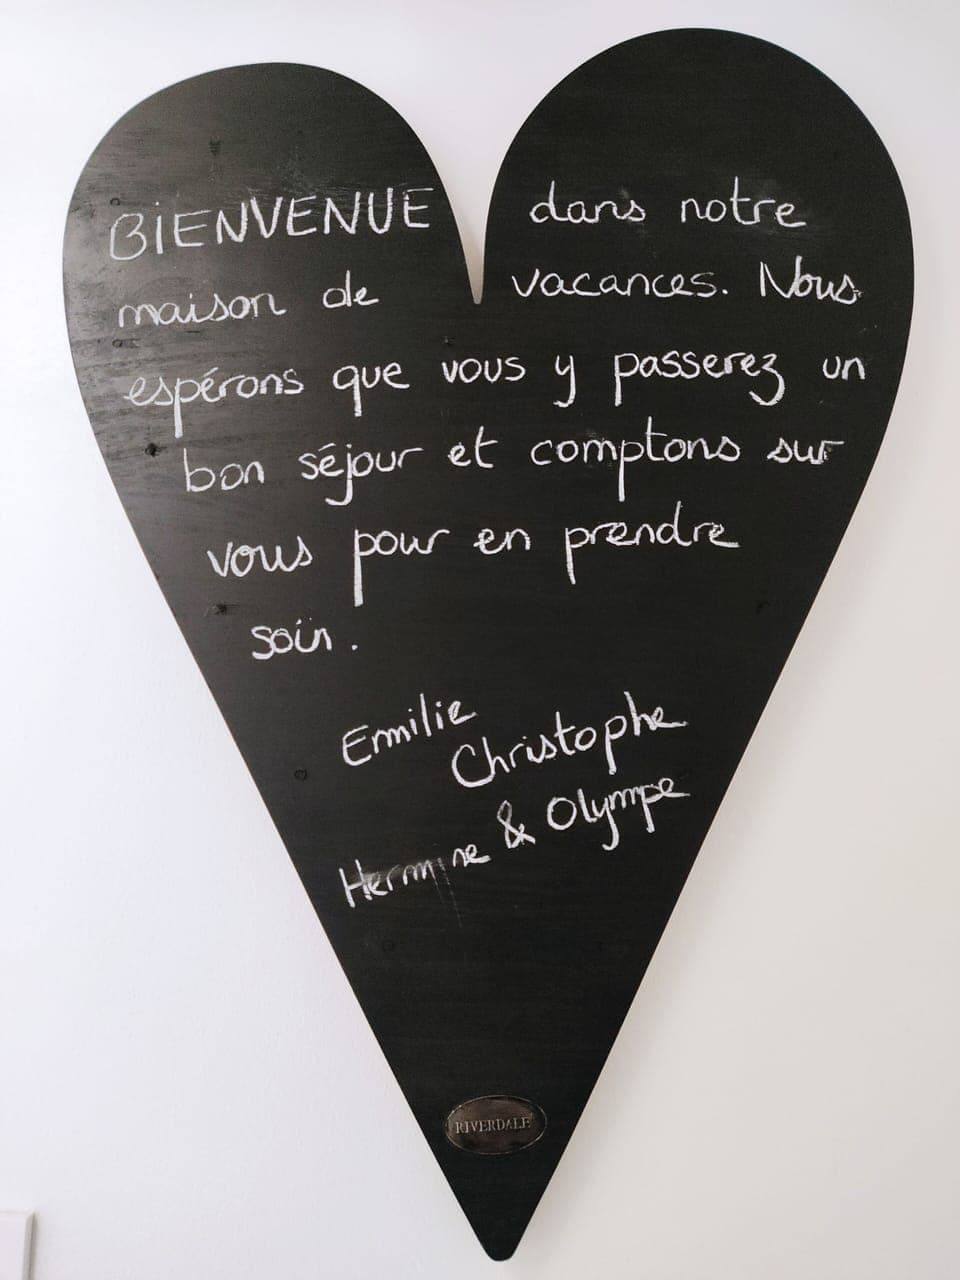 BIENVENUE dans notre
maison de vacances. Nous
espérons que vous y passerez un
bon séjour et comptons sur
vous pour en prendre
soin.
Emilie
Christophe
& Olympe
Hermine
RIVERDALE